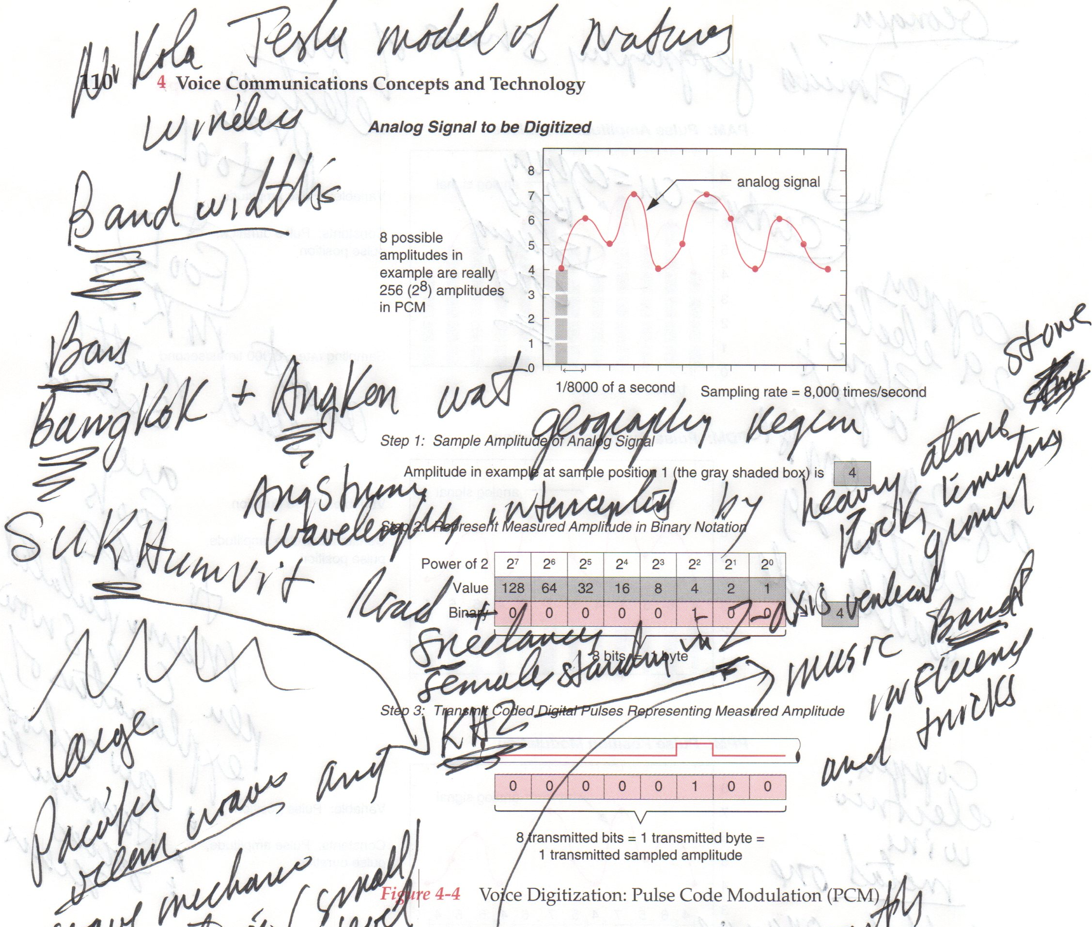 Nikola Tesla model of Natures
110 4 Voice Communications Concepts and Technology
wireless
Analog Signal to be Digitized
Band widths
8
7
6
5
4
3
2
1
0
analog signal
8 possible
amplitudes in
example are really
256 (2⁸) amplitudes
in PCM
1/8000 of a second
Sampling rate = 8,000 times/second
stone
Bangkok + Angkor wat
geography region
Step 1: Sample Amplitude of Analog Signal
Amplitude in example at sample position 1 (the gray shaded box) is 4
Angstrum
wavelengths intercepted by heavy atoms
Rocks
Step 2: Represent Measured Amplitude in Binary Notation
Power of 2 2⁷ 2⁶ 2⁵ 2⁴ 2³ 2² 2¹ 2⁰
Value 128 64 32 16 8 4 2 1
Binary 0 0 0 0 0 1 0 0 = 4
8 bits = 1 byte
SUKHumvit Road
freelancer
females standing in Z-axis vertical
music Band
influency
and tricks
KHZ
Step 3: Transmit Coded Digital Pulses Representing Measured Amplitude
0 0 0 0 0 1 0 0
8 transmitted bits = 1 transmitted byte =
1 transmitted sampled amplitude
large
Pacific
ocean waves and
wave mechanic
(small
level
Figure 4-4 Voice Digitization: Pulse Code Modulation (PCM)